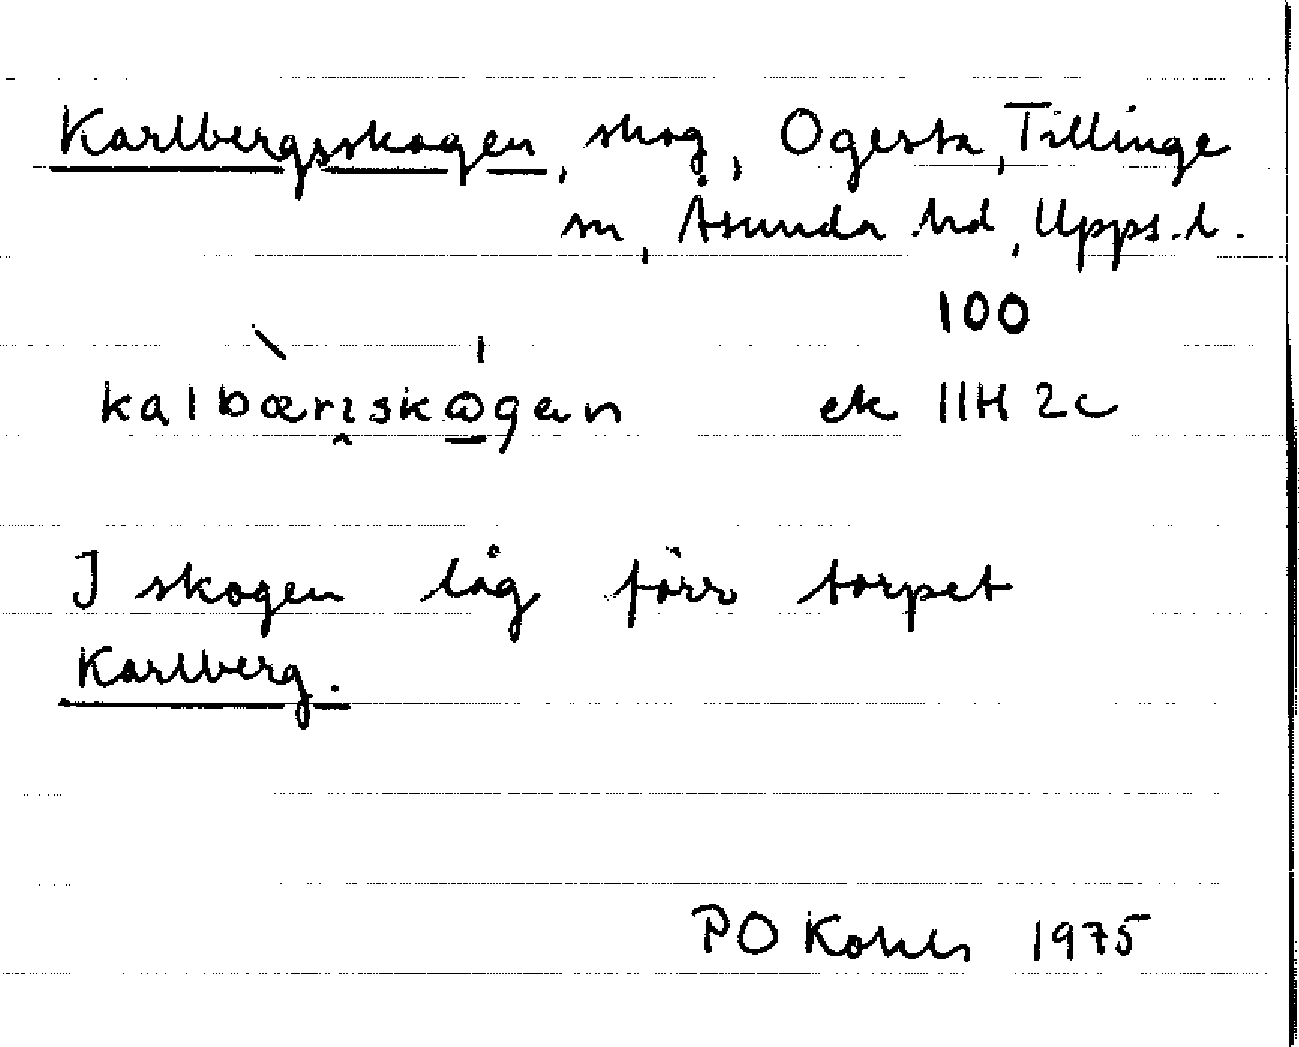 Karlbergsskogen, skog, Ogesta, Tillinge
sn, Åsunda hd, Upps. l.
100
kalbæriskωgan ek 11H 2c
I skogen låg förr torpet
Karlberg.
PO 1975